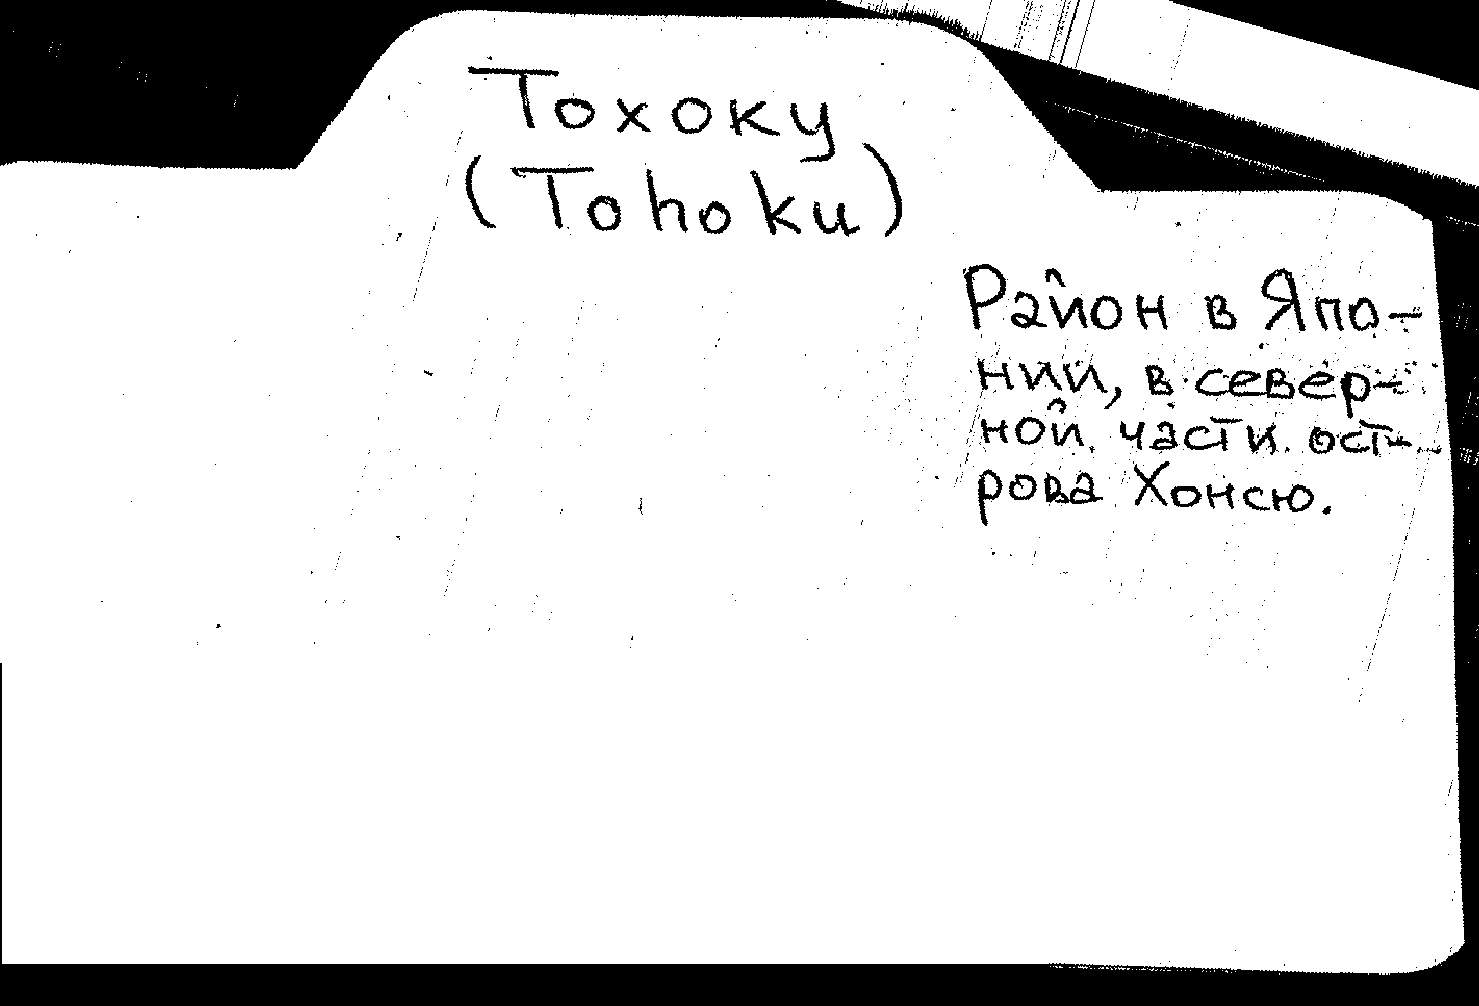 Тохоку
(Tohoku)
Район в Япо-
нии, в север-
ной части ост-
рова Хонсю.